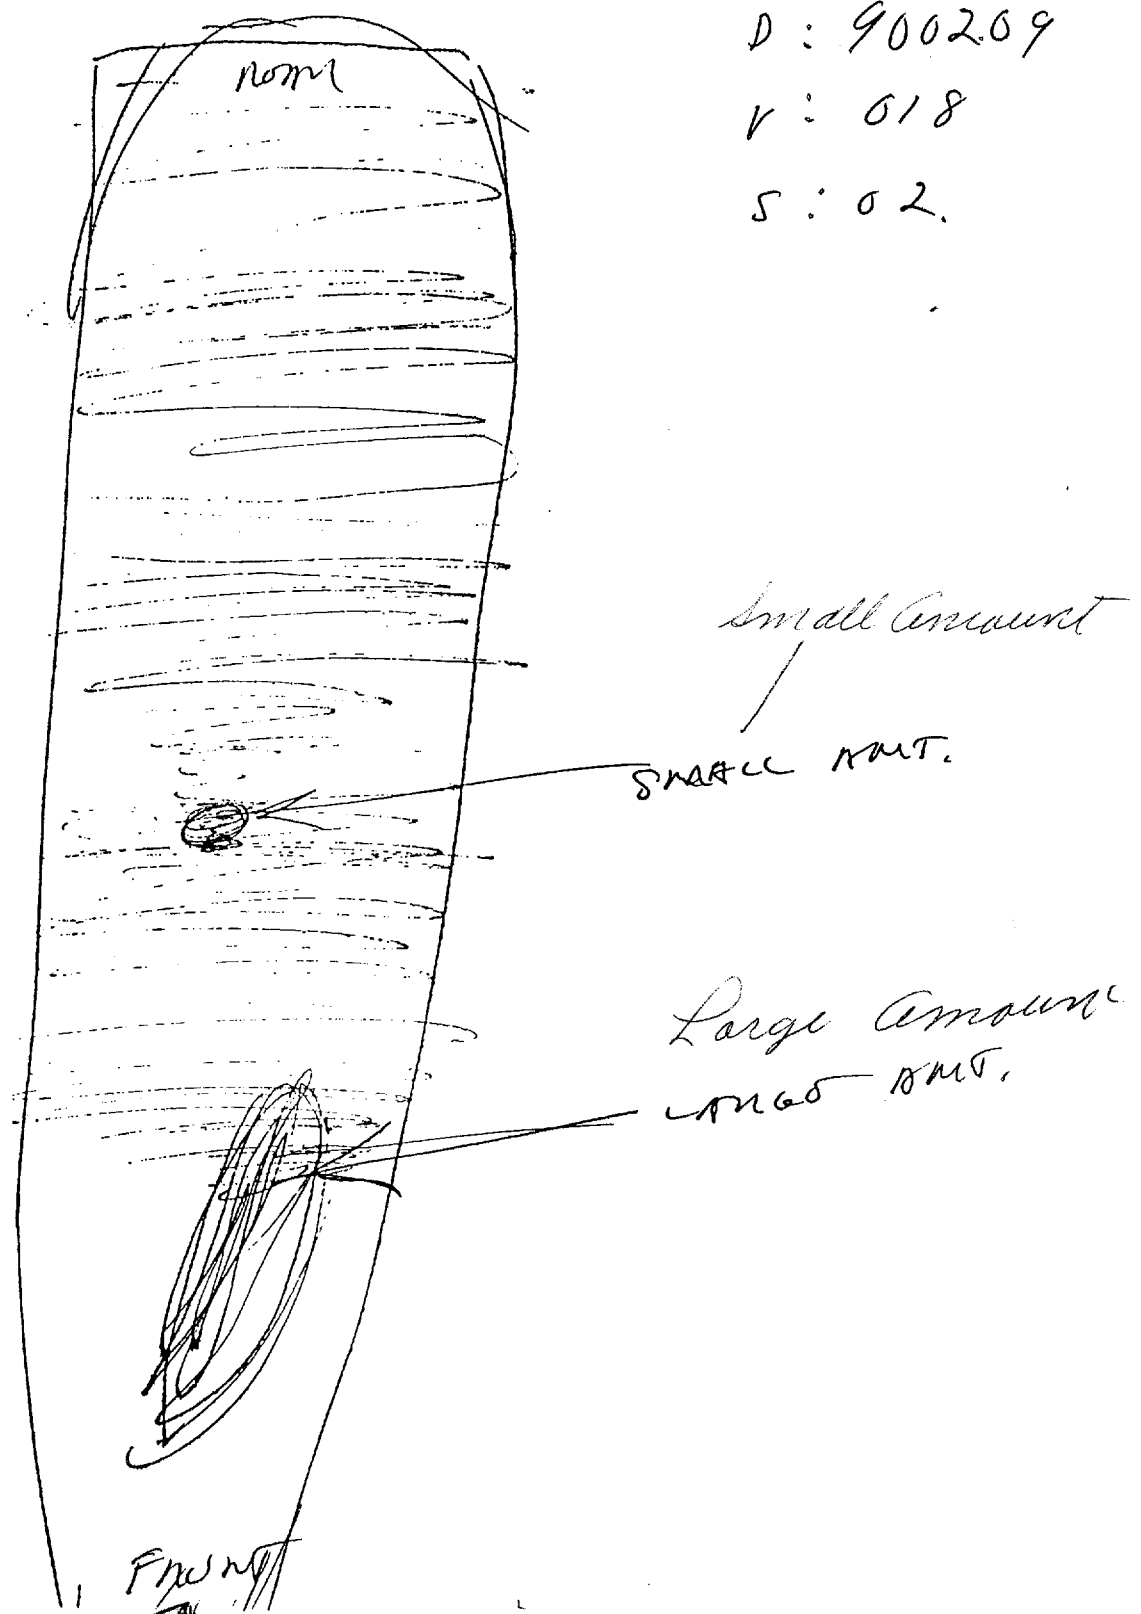 D : 900209
V : 018
S : 02.
REAR
Small Amount
SMALL AMT.
Large Amount
LARGE AMT.
FRONT